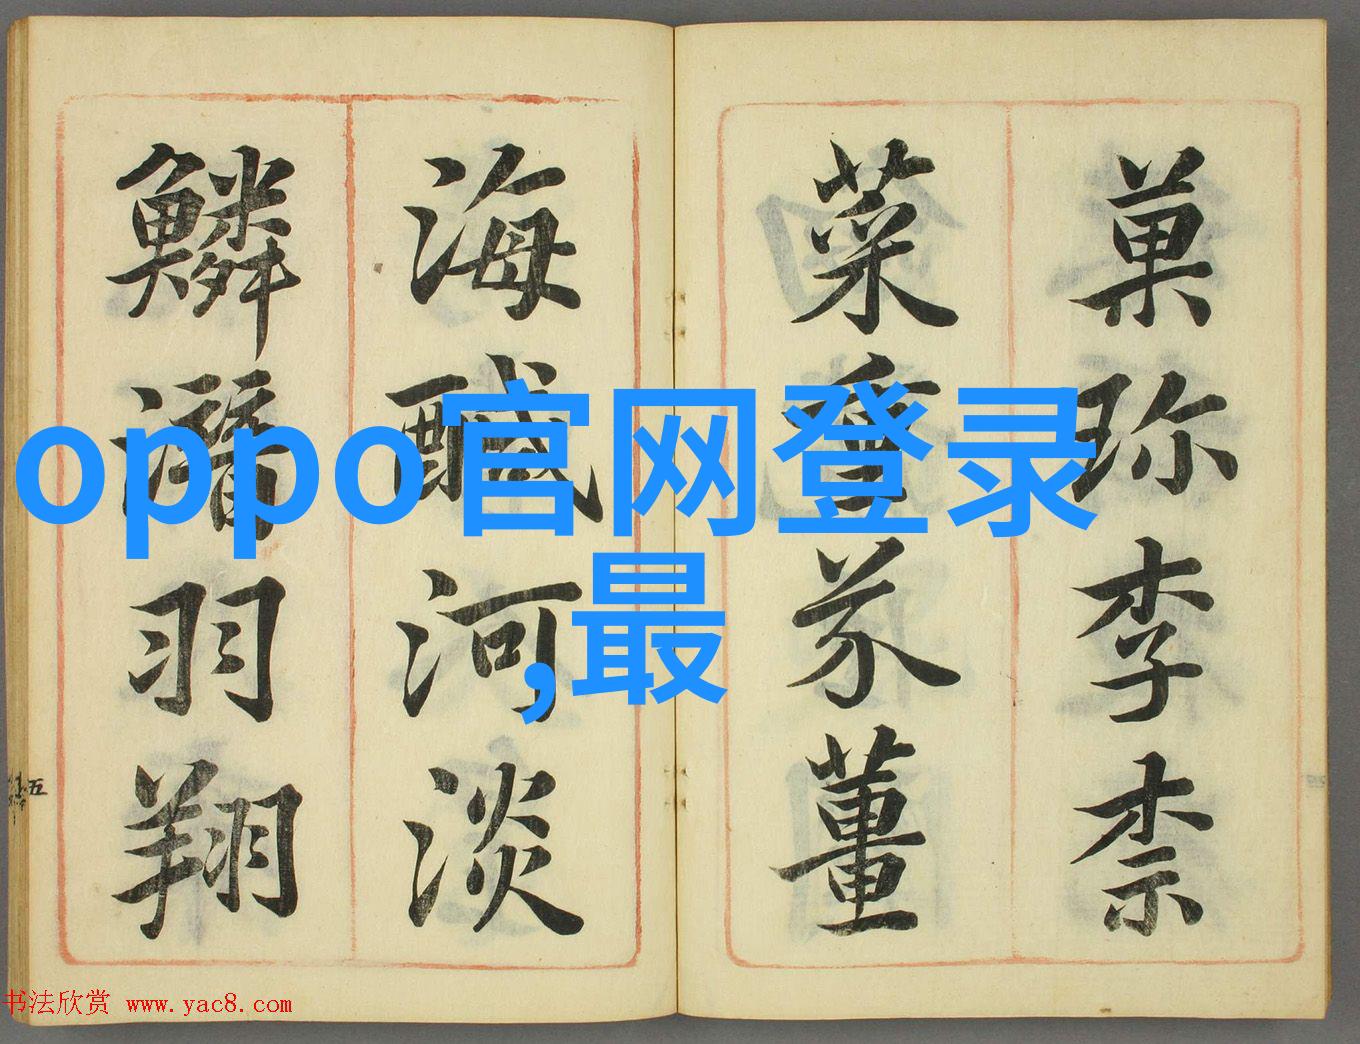 菓珎李柰
菜重芥董
海醎河淡
鱗潛羽翔
oppo官网登录
,最
五
书法欣赏 www.yac8.com